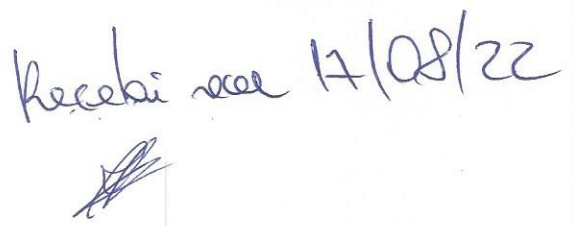 Recebi 17/08/22